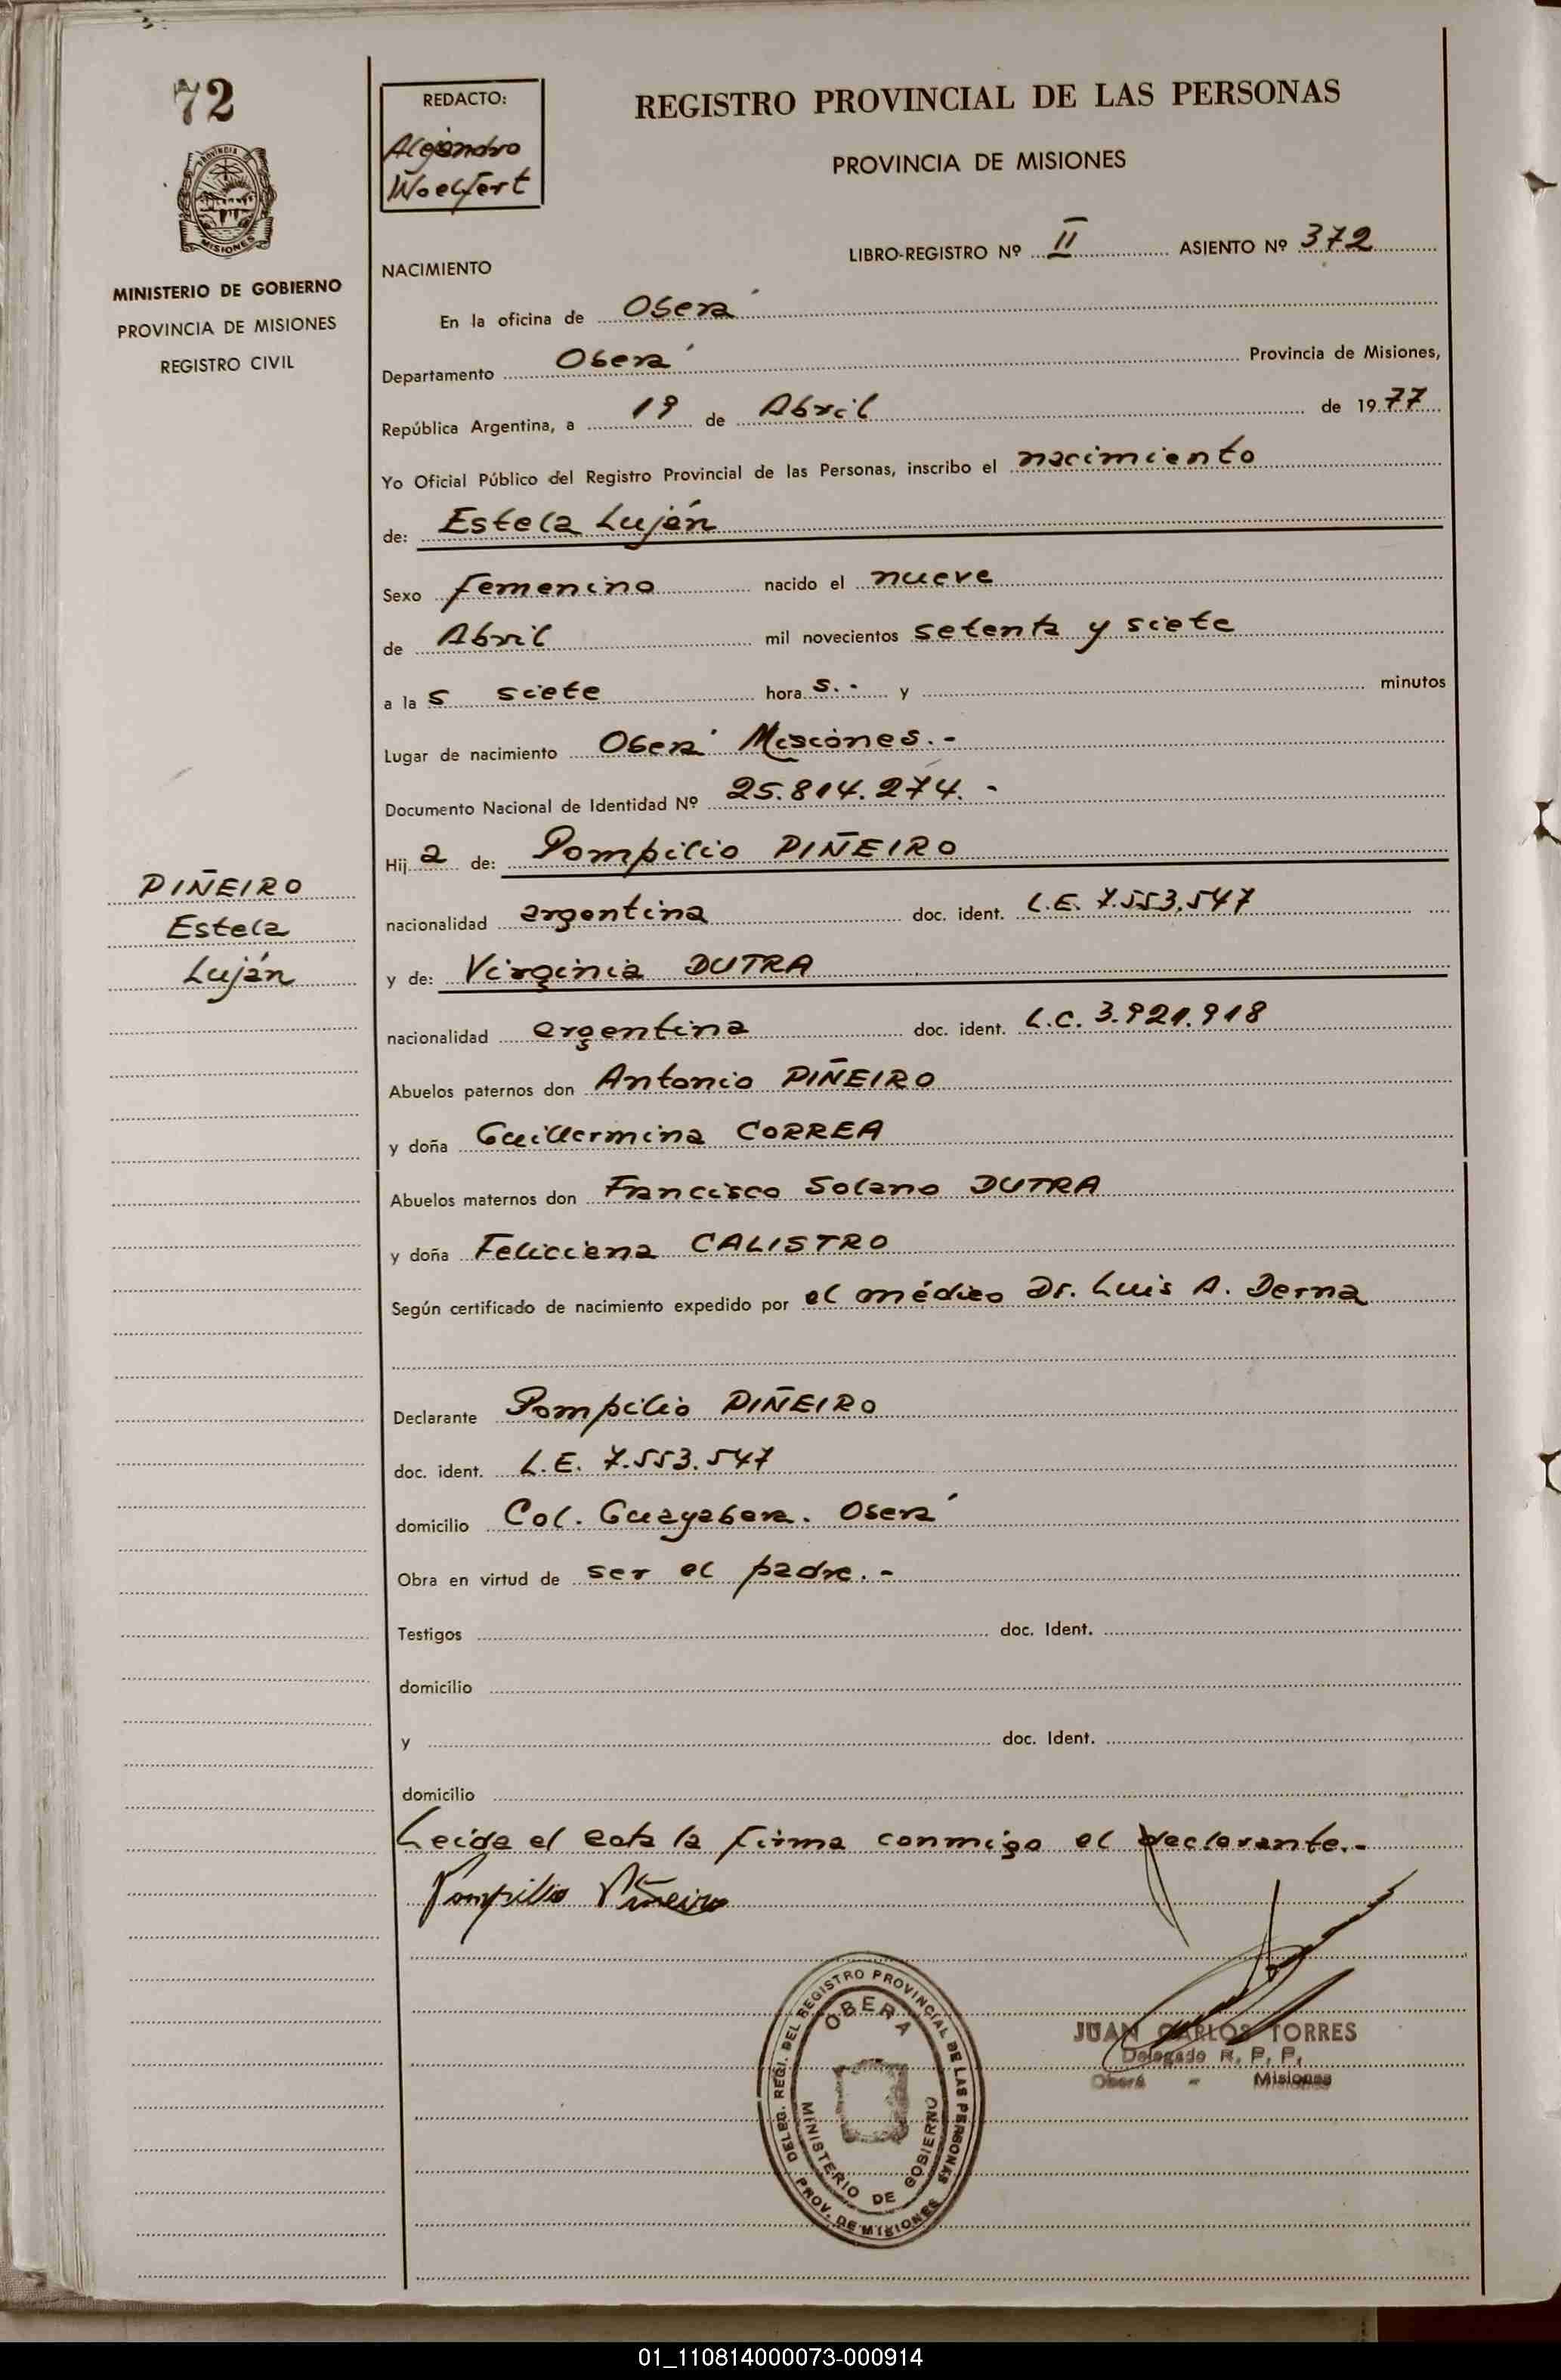 72
PROVINCIA
MISIONES
MINISTERIO DE GOBIERNO
PROVINCIA DE MISIONES
REGISTRO CIVIL
PIÑEIRO
Estela
Luján
REDACTO:
Alejandro
Woelfert
REGISTRO PROVINCIAL DE LAS PERSONAS
PROVINCIA DE MISIONES
LIBRO-REGISTRO Nº II ASIENTO Nº 372
NACIMIENTO
En la oficina de Oberá
Departamento Oberá Provincia de Misiones,
República Argentina, a 19 de Abril de 1977
Yo Oficial Público del Registro Provincial de las Personas, inscribo el nacimiento
de: Estela Luján
Sexo femenino nacido el nueve
de Abril mil novecientos setenta y siete
a la s siete hora s.- y minutos
Lugar de nacimiento Oberá Misiones.-
Documento Nacional de Identidad Nº 25.814.274.-
Hij a de: Pompilio PIÑEIRO
nacionalidad argentina doc. ident. L.E. 7.553.547
y de: Virginia DUTRA
nacionalidad argentina doc. ident. L.C. 3.921.918
Abuelos paternos don Antonio PIÑEIRO
y doña Guillermina CORREA
Abuelos maternos don Francisco Solano DUTRA
y doña Feliciena CALISTRO
Según certificado de nacimiento expedido por el médico Dr. Luis A. Derna
Declarante Pompilio PIÑEIRO
doc. ident. L.E. 7.553.547
domicilio Col. Guayabera. Oberá
Obra en virtud de ser el padre.-
Testigos doc. Ident.
domicilio
y doc. Ident.
domicilio
Leida el acta la firma conmigo el declarante.-
Pompilio Piñeiro
DELEG. REGI. DEL REGISTRO PROVINCIAL DE LAS PERSONAS
OBERA
MINISTERIO DE GOBIERNO
PROV. DE MISIONES
JUAN CARLOS TORRES
Delegado R. P. P.
Oberá - Misiones
01_110814000073-000914